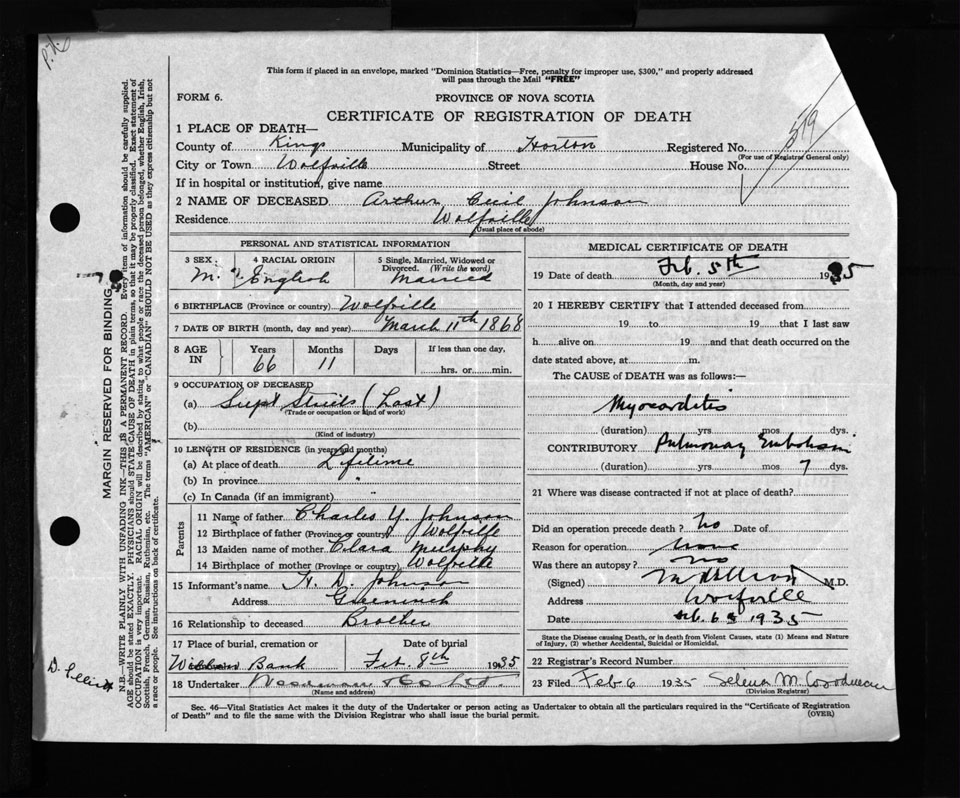 P.H.
This form if placed in an envelope, marked "Dominion Statistics—Free, penalty for improper use, $300," and properly addressed
will pass through the Mail "FREE"
FORM 6.
PROVINCE OF NOVA SCOTIA
CERTIFICATE OF REGISTRATION OF DEATH
579
1 PLACE OF DEATH—
County of Kings Municipality of Horton Registered No.
(For use of Registrar General only)
City or Town Wolfville Street House No.
If in hospital or institution, give name
2 NAME OF DECEASED Arthur Cecil Johnson
Residence Wolfville
(Usual place of abode)
PERSONAL AND STATISTICAL INFORMATION
3 SEX 4 RACIAL ORIGIN 5 Single, Married, Widowed or
Divorced. (Write the word)
M. English Married
6 BIRTHPLACE (Province or country) Wolfville
7 DATE OF BIRTH (month, day and year) March 11th 1868
8 AGE IN Years Months Days If less than one day,
66 11 hrs. or min.
9 OCCUPATION OF DECEASED
(a) Supt Streets (Last)
(Trade or occupation or kind of work)
(b)
(Kind of industry)
10 LENGTH OF RESIDENCE (in years and months)
(a) At place of death Lifetime
(b) In province "
(c) In Canada (if an immigrant)
Parents
11 Name of father Charles Y. Johnson
12 Birthplace of father (Province or country) Wolfville
13 Maiden name of mother Clara Murphy
14 Birthplace of mother (Province or country) Wolfville
15 Informant's name H. D. Johnson
Address Greenwich
16 Relationship to deceased Brother
17 Place of burial, cremation or Date of burial
Willow Bank Feb. 8th 1935
18 Undertaker Woodman
(Name and address)
MEDICAL CERTIFICATE OF DEATH
19 Date of death Feb. 5th 1935
(Month, day and year)
20 I HEREBY CERTIFY that I attended deceased from
19 to 19 that I last saw
h alive on 19 and that death occurred on the
date stated above, at m.
The CAUSE of DEATH was as follows:—
Myocarditis
(duration) yrs. mos. dys.
CONTRIBUTORY Pulmonary Embolism
(duration) yrs. mos. 7 dys.
21 Where was disease contracted if not at place of death?
Did an operation precede death? No Date of
Reason for operation none
Was there an autopsy? no
(Signed) M.D.
Address Wolfville
Date Feb. 6 1935
State the Disease causing Death, or in death from Violent Causes, state (1) Means and Nature
of Injury, (2) whether Accidental, Suicidal or Homicidal.
22 Registrar's Record Number
23 Filed Feb 6 1935 Selena M. Woodman
(Division Registrar)
Sec. 46—Vital Statistics Act makes it duty of the Undertaker or person acting as Undertaker to obtain all the particulars required in the "Certificate of Registration
of Death" and to file the same with the Division Registrar who shall issue the burial permit.
(OVER)
MARGIN RESERVED FOR BINDING
N.B.—WRITE PLAINLY WITH UNFADING INK—THIS IS A PERMANENT RECORD. Every item of information should be carefully supplied.
AGE should be stated EXACTLY. PHYSICIANS should STATE CAUSE OF DEATH in plain terms, so that it may be properly classified. Exact statement of
OCCUPATION is very important. RACIAL ORIGIN will be described by stating to what people or race the deceased person belonged, whether English, Irish,
Scottish, French, German, Russian, Ruthenian, etc. The terms "AMERICAN" or "CANADIAN" SHOULD NOT BE USED as they express citizenship but not
a race or people. See instructions on back of certificate.